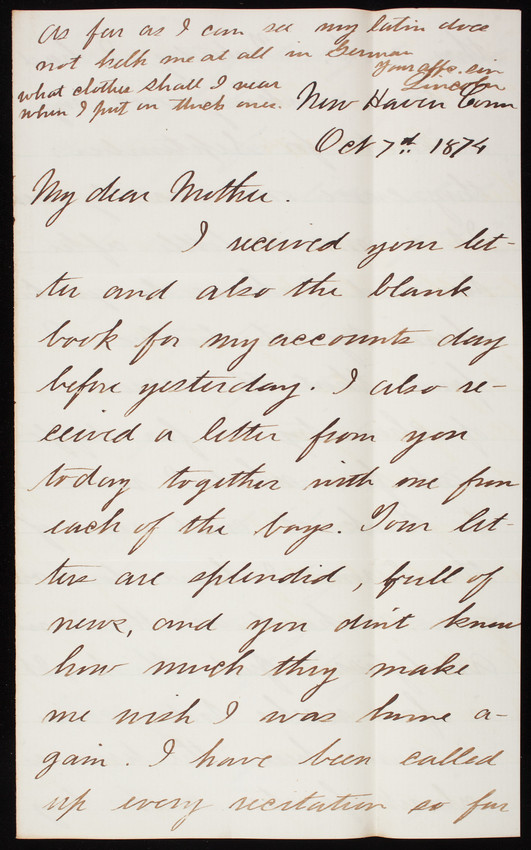 as far as I can see my latin does
not help me at all in German
Your affe. son
Lincoln
what clothes shall I wear
when I put on thick ones.
New Haven Conn
Oct 7th 1874
My dear Mother.
I received your let-
ter and also the blank
book for my accounts day
before yesterday. I also re-
ceived a letter from you
today together with one from
each of the boys. Your let-
ters are splendid, full of
news, and you don't know
how much they make
me wish I was home a-
gain. I have been called
up every recitation so far